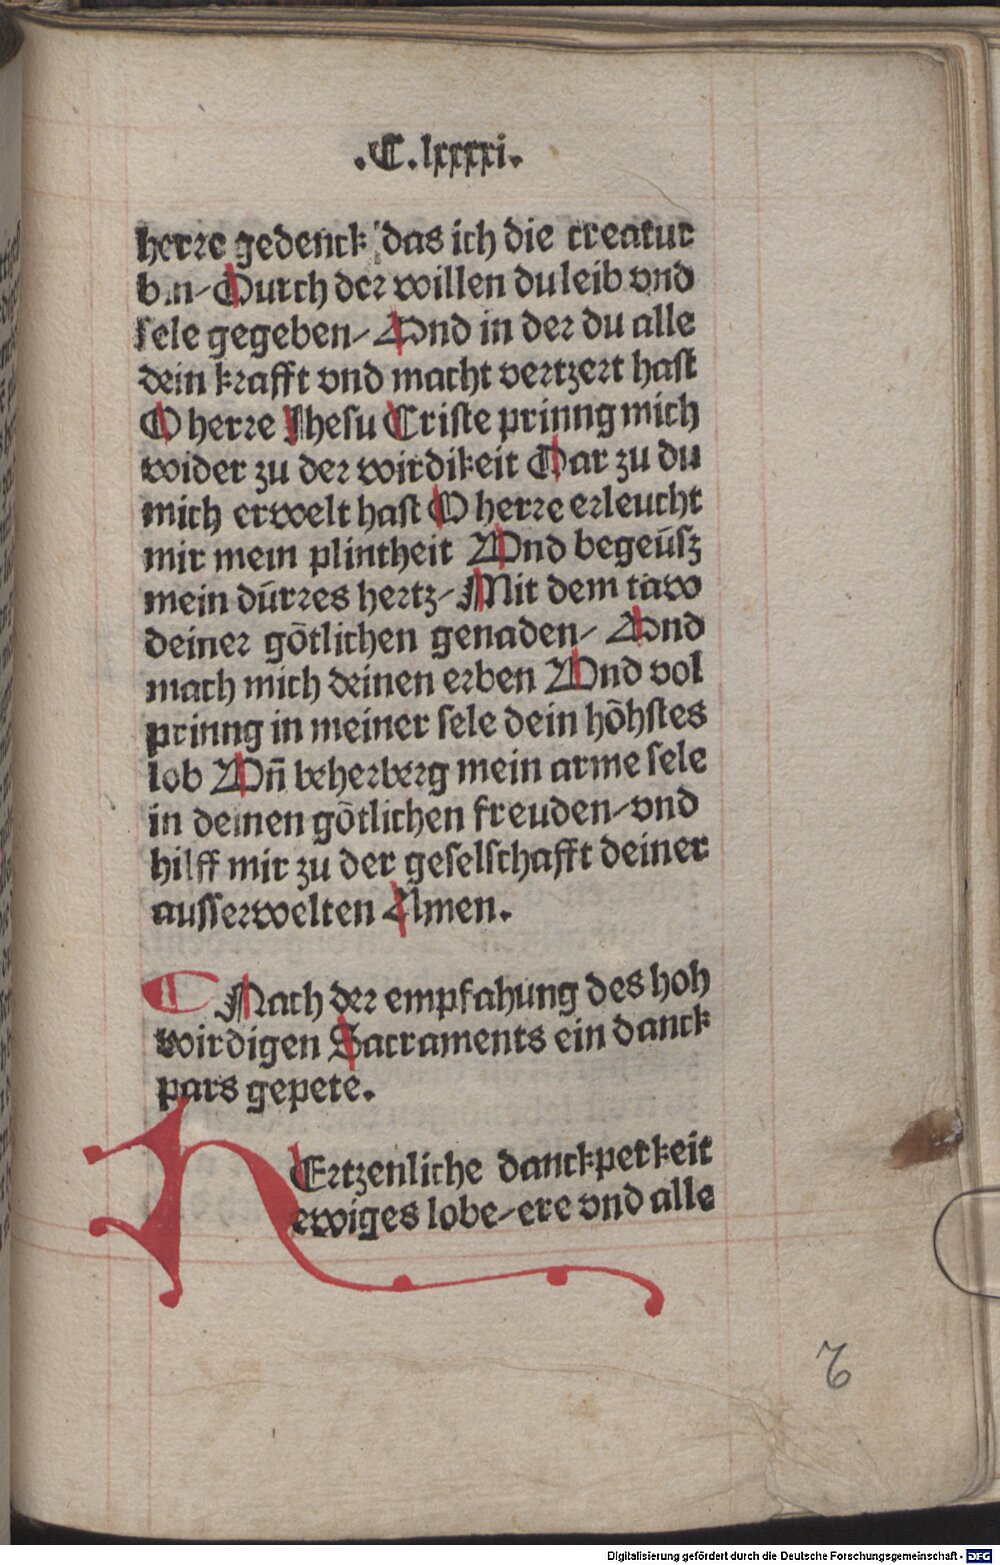 .C.lxxxxi.
herre gedenck das ich die creatur
bin/ Durch der willen du leib vnd
sele gegeben/ Vnd in der du alle
dein krafft vnd macht vertzert hast
O herre Jhesu Criste prinng mich
wider zu der wirdikeit Dar zu du
mich erwelt hast O herre erleucht
mir mein plintheit Vnd begeüsz
mein dürres hertz/ Mit dem taw
deiner götlichen genaden/ Vnd
mach mich deinen erben Vnd vol
prinng in meiner sele dein höhstes
lob Vn̄ beherberg mein arme sele
in deinen götlichen freuden/ vnd
hilff mir zu der geselschafft deiner
ausserwelten Amen.
Nach der empfahung des hoh
wirdigen Sacraments ein danck
pars gepete.
HErtzenliche danckperkeit
ewiges lobe/ ere vnd alle
6
Digitalisierung gefördert durch die Deutsche Forschungsgemeinschaft - DFG